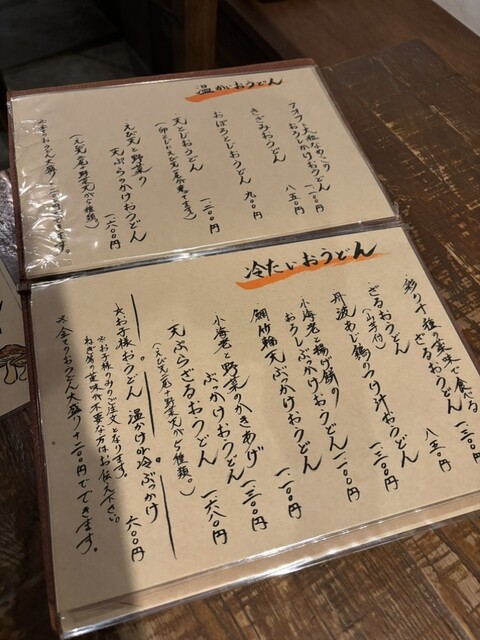 温かいおうどん
フォアフォア大粒なめこの
おろしかけおうどん
一、一〇〇円
きざみおうどん
八五〇円
おぼろとじおうどん
九〇〇円
天とじおうどん
一、二〇〇円
えび天と野菜の
天ぷらかけおうどん
一、六〇〇円
冷たいおうどん
彩り千種の薬味で食べる
ざるおうどん
ざるおうどん
(小芋付)
八五〇円
丹波あじ鶏のつけ汁おうどん
一、三〇〇円
小海老と揚げ餅の
おろしぶっかけおうどん
一、一〇〇円
鯛竹輪天ぶっかけおうどん
一、一〇〇円
小海老と野菜のかきあげ
ぶっかけおうどん
一、三〇〇円
天ぷらざるおうどん
一、六八〇円
(えび天二尾+野菜天から種類。)
大お子様おうどん 温かけor冷ぶっかけ
六〇〇円
※お子様のみのご注文となります。
ねぎ等の薬味が不要な方はお伝え下さい。
※全てのおうどん大盛り+二〇〇円でできます。